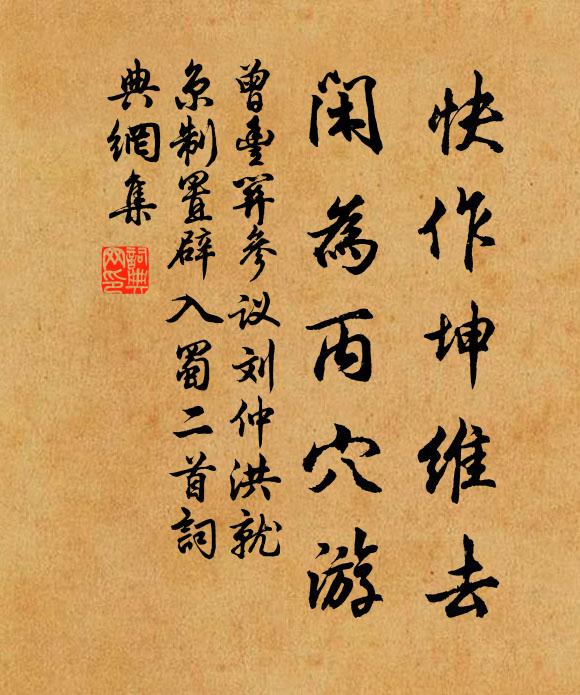 快作坤维去
闲为丙穴游
曾丰羿参议刘仲洪就
京制置辟入蜀二首词
典网集
词典网印